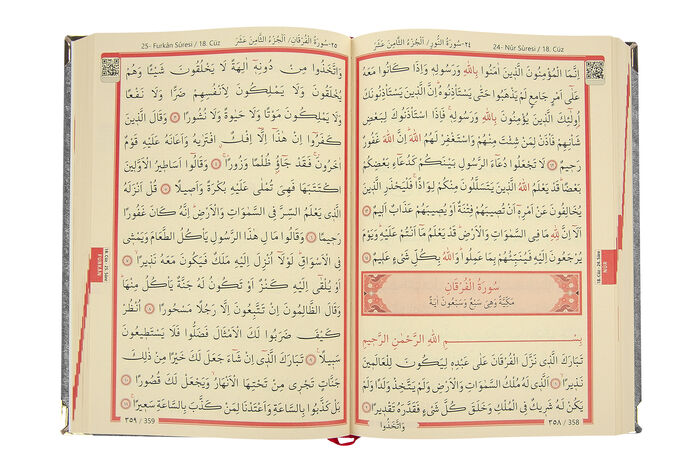 24- Nûr Sûresi / 18. Cüz
٢٤- سُورَةُ النُّورِ / اَلْجُزْءُ الثَّامِنَ عَشَرَ
اِنَّمَا الْمُؤْمِنُونَ الَّذِينَ اٰمَنُوا بِاللّٰهِ وَرَسُولِهِ وَاِذَا كَانُوا مَعَهُ
عَلٰٓى اَمْرٍ جَامِعٍ لَمْ يَذْهَبُوا حَتّٰى يَسْتَأْذِنُوهُ اِنَّ الَّذِينَ يَسْتَأْذِنُونَكَ
اُولٰٓئِكَ الَّذِينَ يُؤْمِنُونَ بِاللّٰهِ وَرَسُولِهِ فَاِذَا اسْتَأْذَنُوكَ لِبَعْضِ
شَأْنِهِمْ فَأْذَنْ لِمَنْ شِئْتَ مِنْهُمْ وَاسْتَغْفِرْ لَهُمُ اللّٰهَ اِنَّ اللّٰهَ غَفُورٌ
رَحِيمٌ ﴿٦٢﴾ لَا تَجْعَلُوا دُعَٓاءَ الرَّسُولِ بَيْنَكُمْ كَدُعَٓاءِ بَعْضِكُمْ
بَعْضًا قَدْ يَعْلَمُ اللّٰهُ الَّذِينَ يَتَسَلَّلُونَ مِنْكُمْ لِوَاذًا فَلْيَحْذَرِ الَّذِينَ
يُخَالِفُونَ عَنْ اَمْرِهِ اَنْ تُصِيبَهُمْ فِتْنَةٌ اَوْ يُصِيبَهُمْ عَذَابٌ اَلِيمٌ ﴿٦٣﴾
اَلَٓا اِنَّ لِلّٰهِ مَا فِي السَّمٰوَاتِ وَالْاَرْضِ قَدْ يَعْلَمُ مَٓا اَنْتُمْ عَلَيْهِ وَيَوْمَ
يُرْجَعُونَ اِلَيْهِ فَيُنَبِّئُهُمْ بِمَا عَمِلُوا وَاللّٰهُ بِكُلِّ شَيْءٍ عَلِيمٌ ﴿٦٤﴾
سُورَةُ الْفُرْقَانِ
مَكِّيَّةٌ وَهِيَ سَبْعٌ وَسَبْعُونَ اٰيَةً
بِسْمِ اللّٰهِ الرَّحْمٰنِ الرَّحِيمِ
تَبَارَكَ الَّذِي نَزَّلَ الْفُرْقَانَ عَلٰى عَبْدِهِ لِيَكُونَ لِلْعَالَمِينَ
نَذِيرًا ﴿١﴾ اَلَّذِي لَهُ مُلْكُ السَّمٰوَاتِ وَالْاَرْضِ وَلَمْ يَتَّخِذْ وَلَدًا وَلَمْ
يَكُنْ لَهُ شَرِيكٌ فِي الْمُلْكِ وَخَلَقَ كُلَّ شَيْءٍ فَقَدَّرَهُ تَقْدِيرًا ﴿٢﴾
وَاتَّخَذُوا
٣٥٨ / 358
18. Cüz - 24. Sûre
NÛR
25- Furkân Sûresi / 18. Cüz
٢٥- سُورَةُ الْفُرْقَانِ / اَلْجُزْءُ الثَّامِنَ عَشَرَ
وَاتَّخَذُوا مِنْ دُونِهِ اٰلِهَةً لَا يَخْلُقُونَ شَيْئًا وَهُمْ
يُخْلَقُونَ وَلَا يَمْلِكُونَ لِاَنْفُسِهِمْ ضَرًّا وَلَا نَفْعًا
وَلَا يَمْلِكُونَ مَوْتًا وَلَا حَيٰوةً وَلَا نُشُورًا ﴿٣﴾ وَقَالَ الَّذِينَ
كَفَرُٓوا اِنْ هٰذَٓا اِلَّٓا اِفْكٌ افْتَرٰيهُ وَاَعَانَهُ عَلَيْهِ قَوْمٌ
اٰخَرُونَ فَقَدْ جَٓاؤُ۫ ظُلْمًا وَزُورًا ﴿٤﴾ وَقَالُٓوا اَسَاطِيرُ الْاَوَّلِينَ
اكْتَتَبَهَا فَهِيَ تُمْلٰى عَلَيْهِ بُكْرَةً وَاَصِيلًا ﴿٥﴾ قُلْ اَنْزَلَهُ
الَّذِي يَعْلَمُ السِّرَّ فِي السَّمٰوَاتِ وَالْاَرْضِ اِنَّهُ كَانَ غَفُورًا
رَحِيمًا ﴿٦﴾ وَقَالُوا مَالِ هٰذَا الرَّسُولِ يَأْكُلُ الطَّعَامَ وَيَمْشِي
فِي الْاَسْوَاقِ لَوْلَٓا اُنْزِلَ اِلَيْهِ مَلَكٌ فَيَكُونَ مَعَهُ نَذِيرًا ﴿٧﴾
اَوْ يُلْقٰٓى اِلَيْهِ كَنْزٌ اَوْ تَكُونُ لَهُ جَنَّةٌ يَأْكُلُ مِنْهَا
وَقَالَ الظَّالِمُونَ اِنْ تَتَّبِعُونَ اِلَّا رَجُلًا مَسْحُورًا ﴿٨﴾ اُنْظُرْ
كَيْفَ ضَرَبُوا لَكَ الْاَمْثَالَ فَضَلُّوا فَلَا يَسْتَطِيعُونَ
سَبِيلًا ﴿٩﴾ تَبَارَكَ الَّذِٓي اِنْ شَٓاءَ جَعَلَ لَكَ خَيْرًا مِنْ ذٰلِكَ
جَنَّاتٍ تَجْرِي مِنْ تَحْتِهَا الْاَنْهَارُ وَيَجْعَلْ لَكَ قُصُورًا ﴿١٠﴾
بَلْ كَذَّبُوا بِالسَّاعَةِ وَاَعْتَدْنَا لِمَنْ كَذَّبَ بِالسَّاعَةِ سَعِيرًا ﴿١١﴾
٣٥٩ / 359
18. Cüz - 25. Sûre
FURKÂN